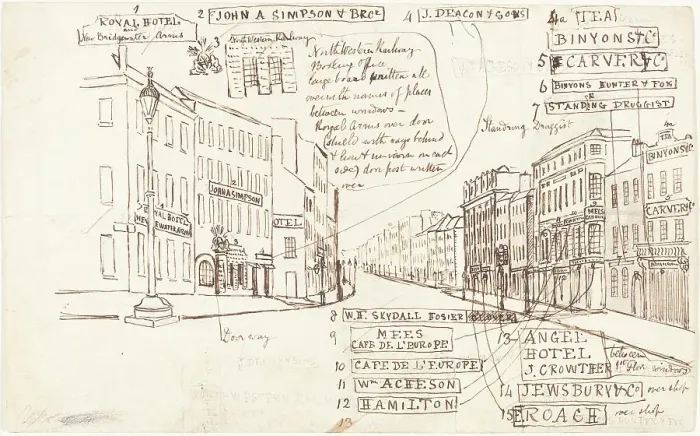 1
ROYAL HOTEL
and
New Bridgewater Arms
2 JOHN A SIMPSON & BROS
3 North Western Railway
4 J. DEACON & SONS
4a TEA
BINYONS & Co
5 CARVER & Co
6 BINYONS HUNTER & FOX
7 STANDING DRUGGIST
Standring Druggist
North Western Railway
Booking office
large board written all
over with names of places
between windows —
Royal Arms over door
(shield with rays behind
& lion & unicorn on each
side) door post written
over
2
JOHN A SIMPSON
HOTEL
ROYAL HOTEL
3
4a
TEA
BINYONS
CARVER
MEES
Doorway
8 W. H. SKYDALL HOSIER GLOVER
9 MEES
CAFE DE L'EUROPE
10 CAFE DE L'EUROPE
11 Wm ACHESON
12 HAMILTON
13
13 ANGEL
HOTEL
J. CROWTHER
between
1st floor windows
14 JEWSBURY & Co over shop
15 ROACH over shop